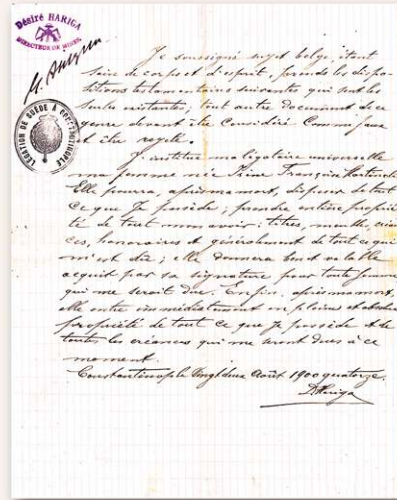 Désiré HARIGA
DIRECTEUR DE MINES
LÉGATION DE SUÈDE À CONSTANTINOPLE
Je soussigné sujet belge, étant
sain de corps et d'esprit, prends les dispo-
sitions testamentaires suivantes qui sont les
seules existantes; tout autre document de ce
genre devant être considéré comme faux
et être rejeté.
J'institue ma légataire universelle
ma femme née Irène François
Elle pourra, après ma mort, disposer de tout
ce que je possède; prendre entière proprié-
té de tout mon avoir: titres, meubles, créan-
ces, honoraires et généralement de tout ce qui
m'est dû; elle donnera bon et valable
acquit par sa signature pour toute somme
qui me serait due. Enfin, après ma mort,
elle entre immédiatement en pleine et absolue
propriété de tout ce que je possède et de
toutes les créances qui me seront dues à ce
moment.
Constantinople Août 1900 quatorze.
DHariga